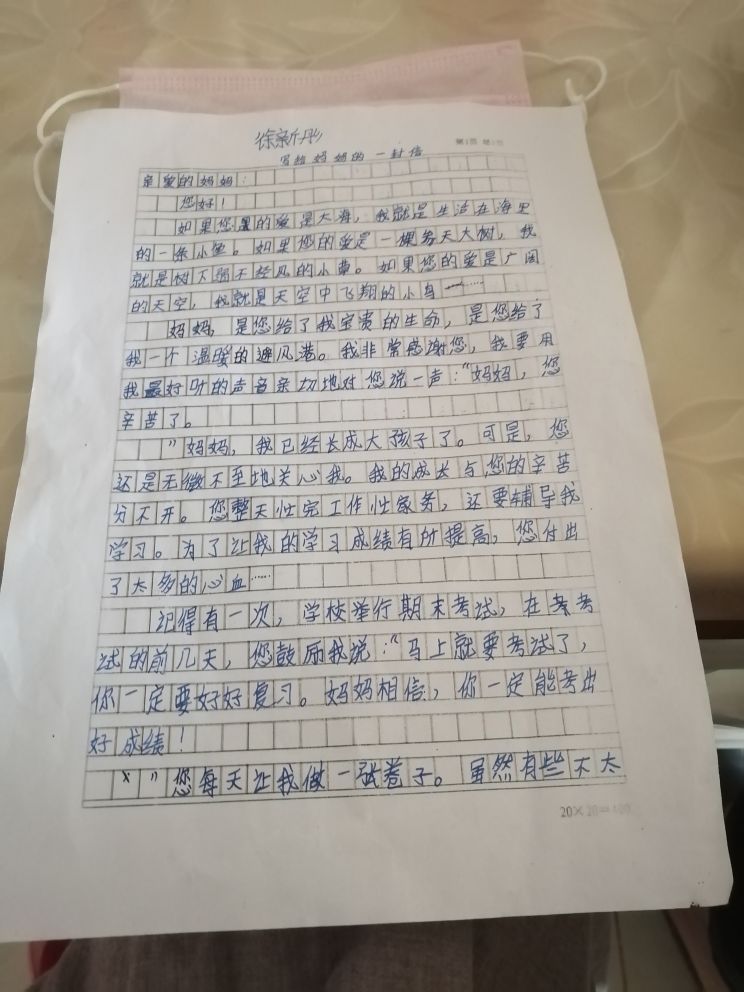 徐新彤
写给妈妈的一封信
亲爱的妈妈：
您好！
如果您的爱是大海，我就是生活在海里
的一条小鱼。如果您的爱是一棵参天大树，我
就是树下弱不经风的小草。如果您的爱是广阔
的天空，我就是天空中飞翔的小鸟……
妈妈，是您给了我宝贵的生命，是您给了
我一个温暖的避风港。我非常感谢您，我要用
我最好听的声音亲切地对您说一声："妈妈，您
辛苦了。
"妈妈，我已经长成大孩子了。可是，您
还是无微不至地关心我。我的成长与您的辛苦
分不开。您整天忙完工作忙家务，还要辅导我
学习。为了让我的学习成绩有所提高，您付出
了太多的心血……
记得有一次，学校举行期末考试，在考
试的前几天，您鼓励我说："马上就要考试了，
你一定要好好复习。妈妈相信，你一定能考出
好成绩！
"您每天让我做一试卷子。虽然有些不太
20×20=400